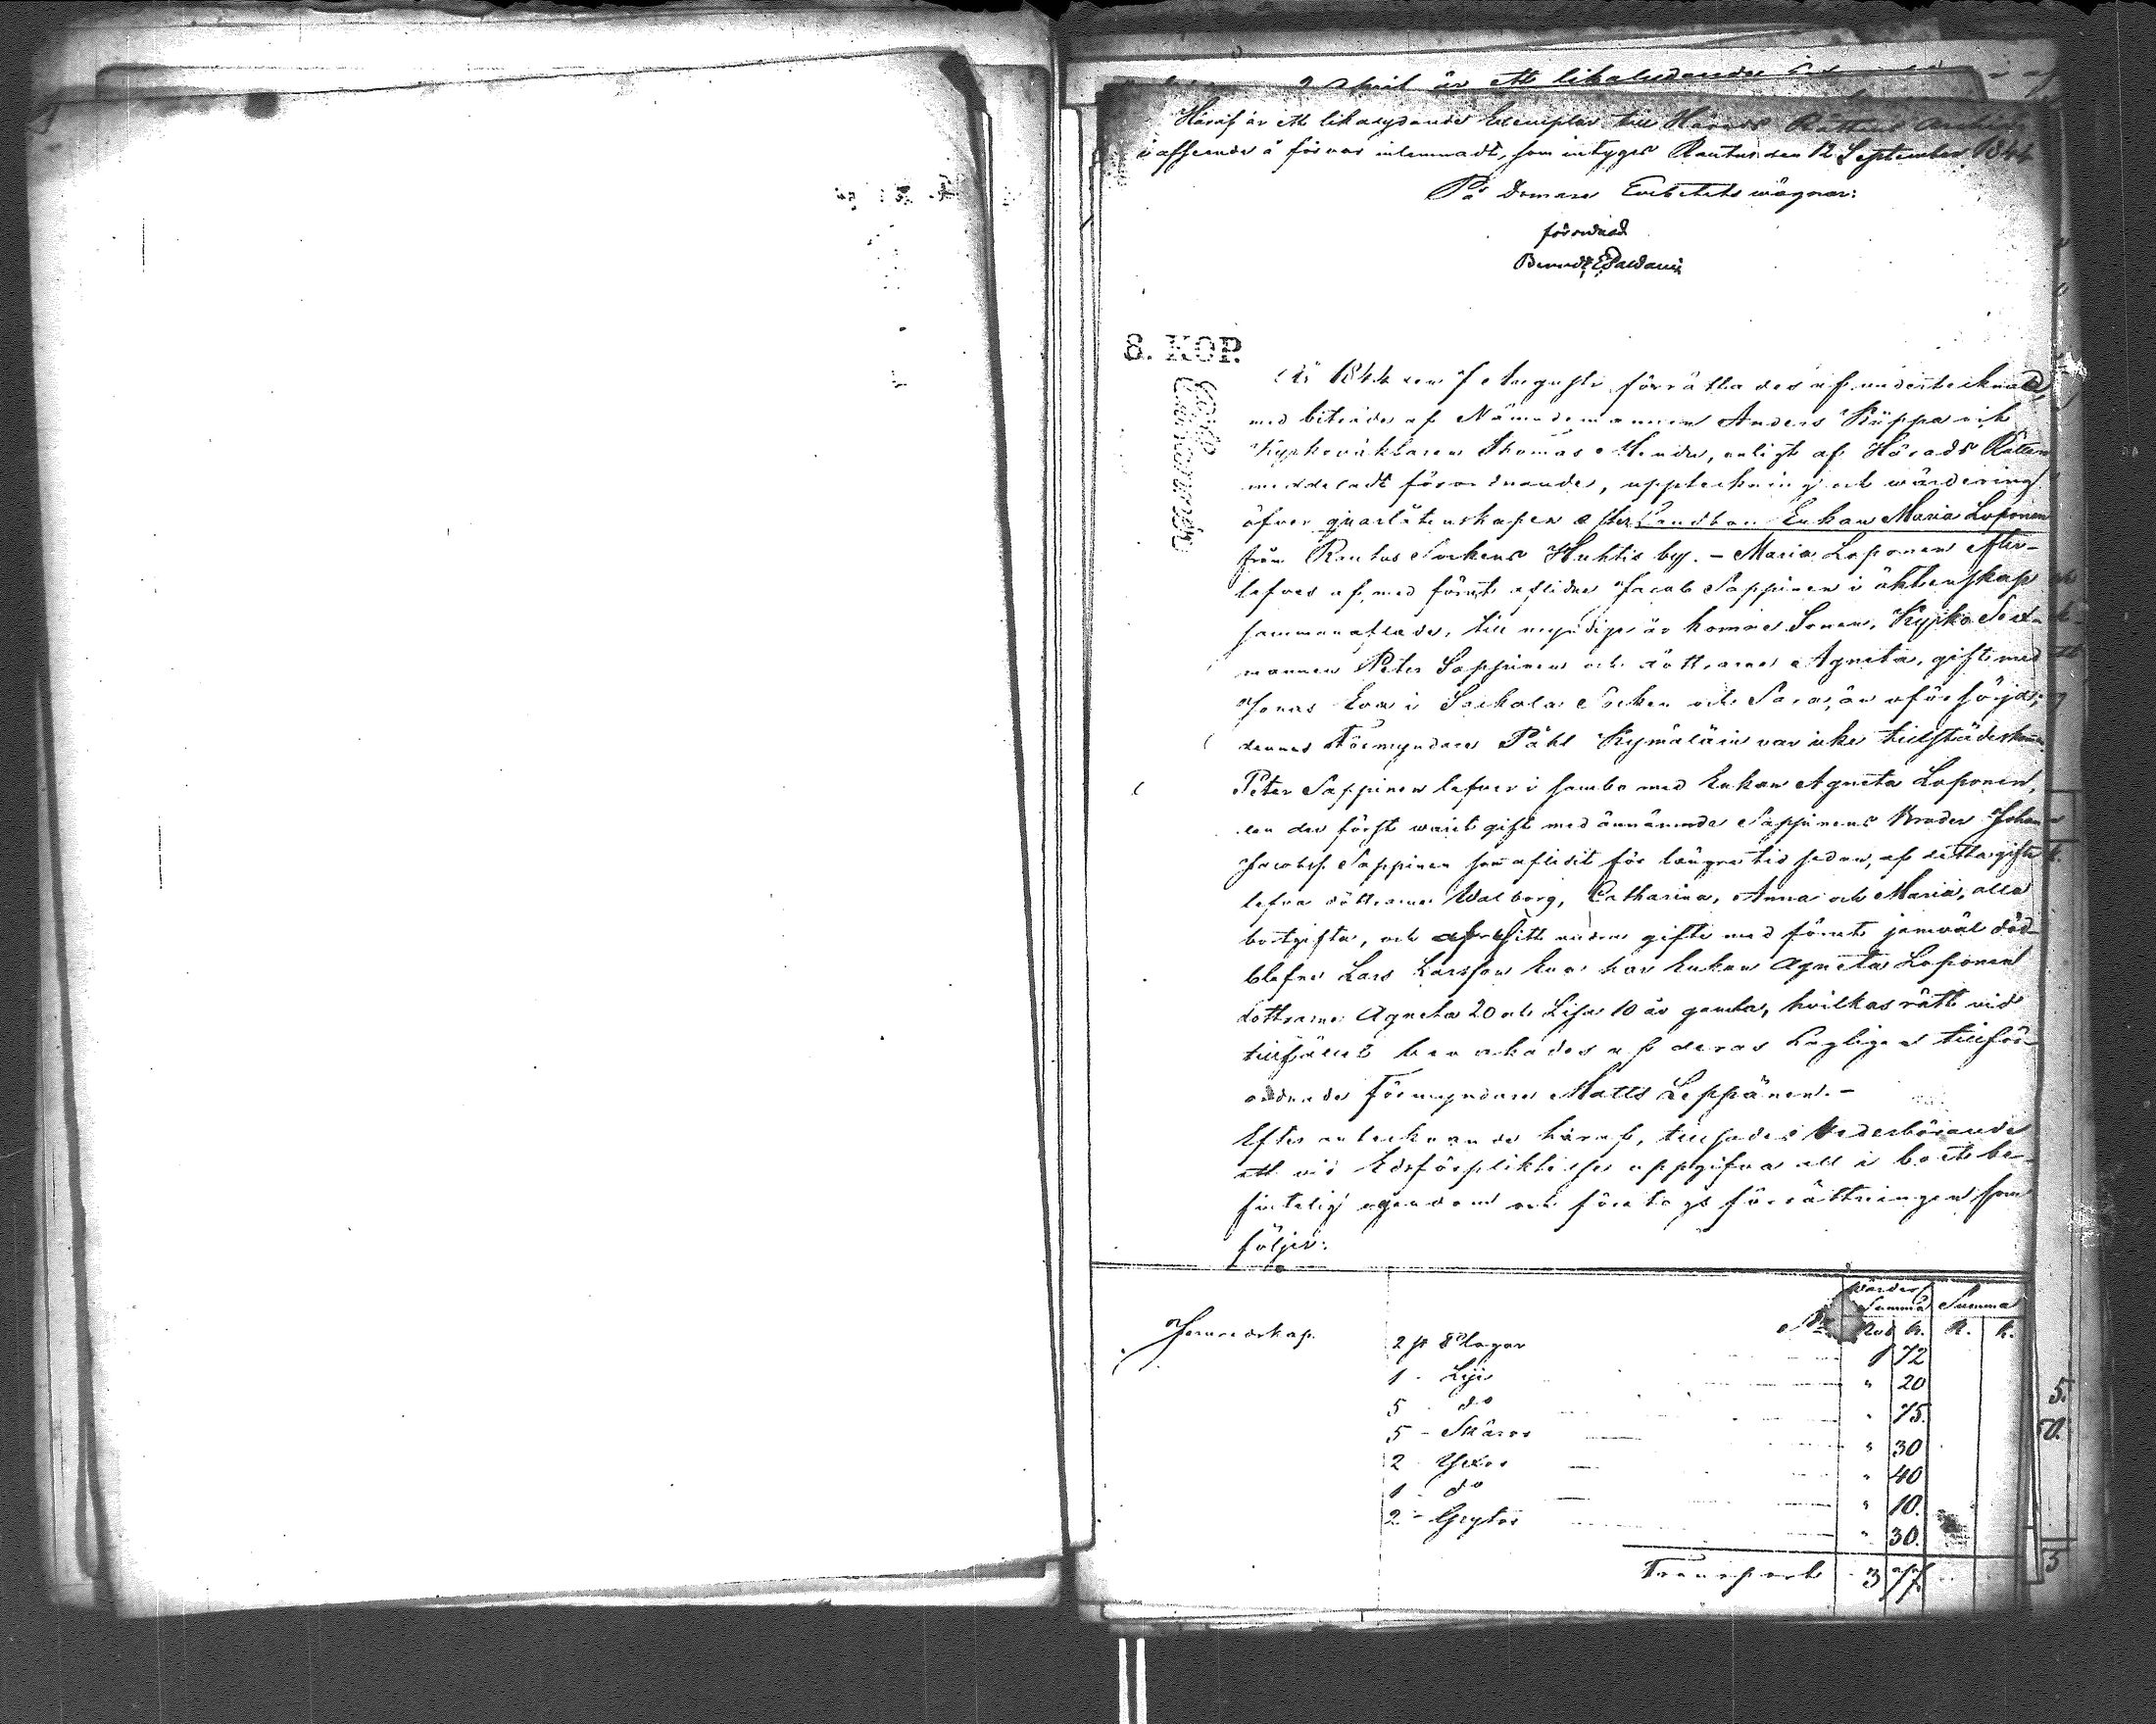 2 April är ett likaludande
Häraf är ett likalydande Exemplar till Härads Rättens Archiv
i afseende å förvar inlemnadt, som intyges Rautus den 12 September 1844
På Domare Embetets wägnar:
förordnad
8. KOP.
År 1844 den 7 Augusti förrättades af undertecknad,
med biträde af Nämndemannen Anders Käppa och
Kyrkoväktaren Thomas, enligt af Härads Rätten
meddeladt förordnande, uppteckning och wärdering
öfver qvarlåtenskapen efter Enkan Maria Loponen
från Rautus Sockens Huhtis by. – Maria Loponen efter-
lefves af, med förut aflidne Jacob Sappinen i äktenskap
sammanaflade, till myndige år komne Sonen, Kyrko Sex-
mannen Peter Sappinen och döttrarne Agneta, gift med
Jonas i Sackola Socken och Sara, än oförsörjd;
dennes Förmyndare Påhl Kymäläin var icke tillstädeskommen.
Peter Sappinen lefver i sambo med Enkan Agneta Loponen,
den der först warit gift med ännämnde Sappinens Broder Johan
Jacobss. Sappinen som aflidit för längre tid sedan, af detta gifte
lefva döttrarne Walborg, Catharina, Anna och Maria, alla
bortgifta, och af sitt andra gifte med förut jemväl död-
blefne Lars Larsson har Enkan Agneta Loponen
döttrarne Agneta 20 och Lisa 10 år gamla, hvilkas rätt vid
tillfället bevakades af deras Lagligen tillför-
ordnade Förmyndare Matts Leppänen. –
Efter antecknande häraf, tillsades Vederbörande
att vid Edsförpliktelse uppgifva all i boet be-
fintelig egendom och företogs förrättningen som
följer:
Wärder.
Summa Summa
Rub. k. R. k.
Jernredskap. 2 st Plogar 1 72
1 - Lije " 20
5 - d:o " 75.
5 - Skäror " 30
2 - Yxor " 40
1 - d:o " 10.
2 - Grytor " 30.
Transport 3 77